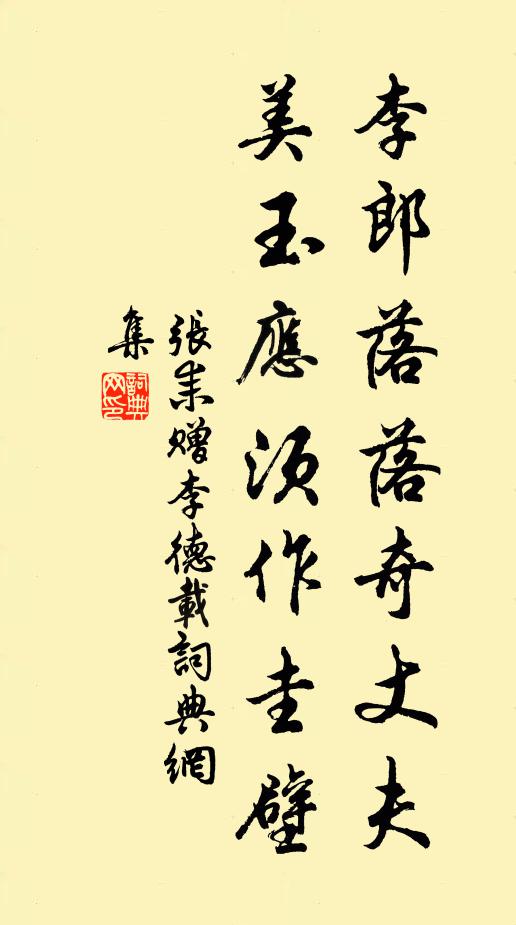 李郎落落奇丈夫
美玉應須作圭璧
張耒贈李德載詞典網
集
詞典网印